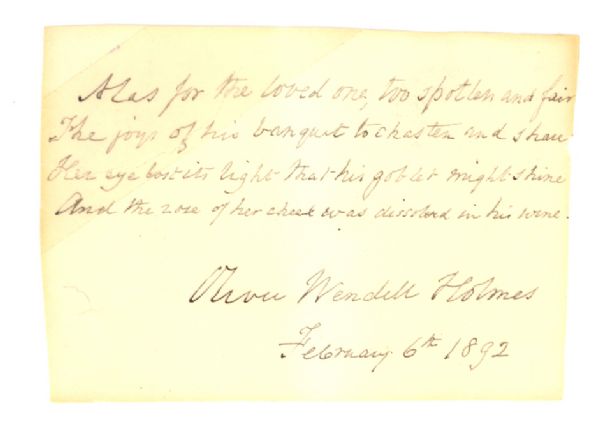 Alas for the loved one, too spotless and fair
The joys of his banquet to chasten and share
Her eye lost its light that his goblet might shine
And the rose of her cheek was dissolved in his wine.
Oliver Wendell Holmes
February 6th 1892